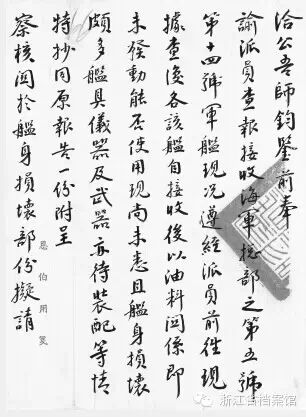 洽公吾師鈞鑒前奉
諭派員查報接收海軍總部之第五號
第十四號軍艦現況遵經派員前往現
據查後各該艦自接收後以油料関係即
未發動能否使用現尚未悉且艦身損壞
頗多艦具儀器及武器亦待裝配等情
特抄同原報告一份附呈
察核関於艦身損壞部份擬請
恩伯用箋
浙江省档案馆